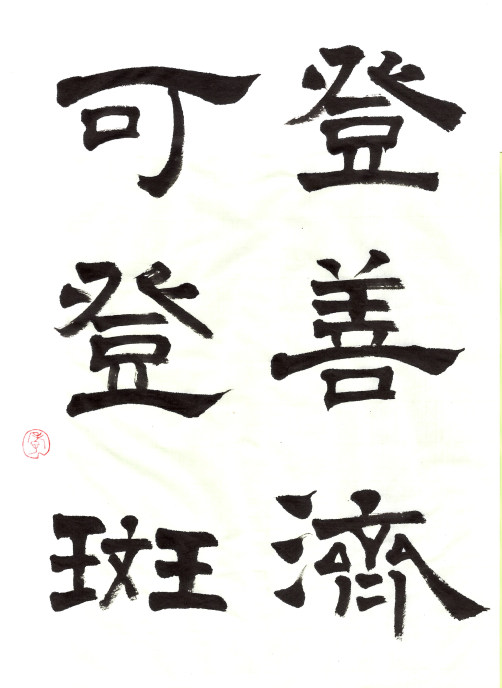 登善濟
可登斑